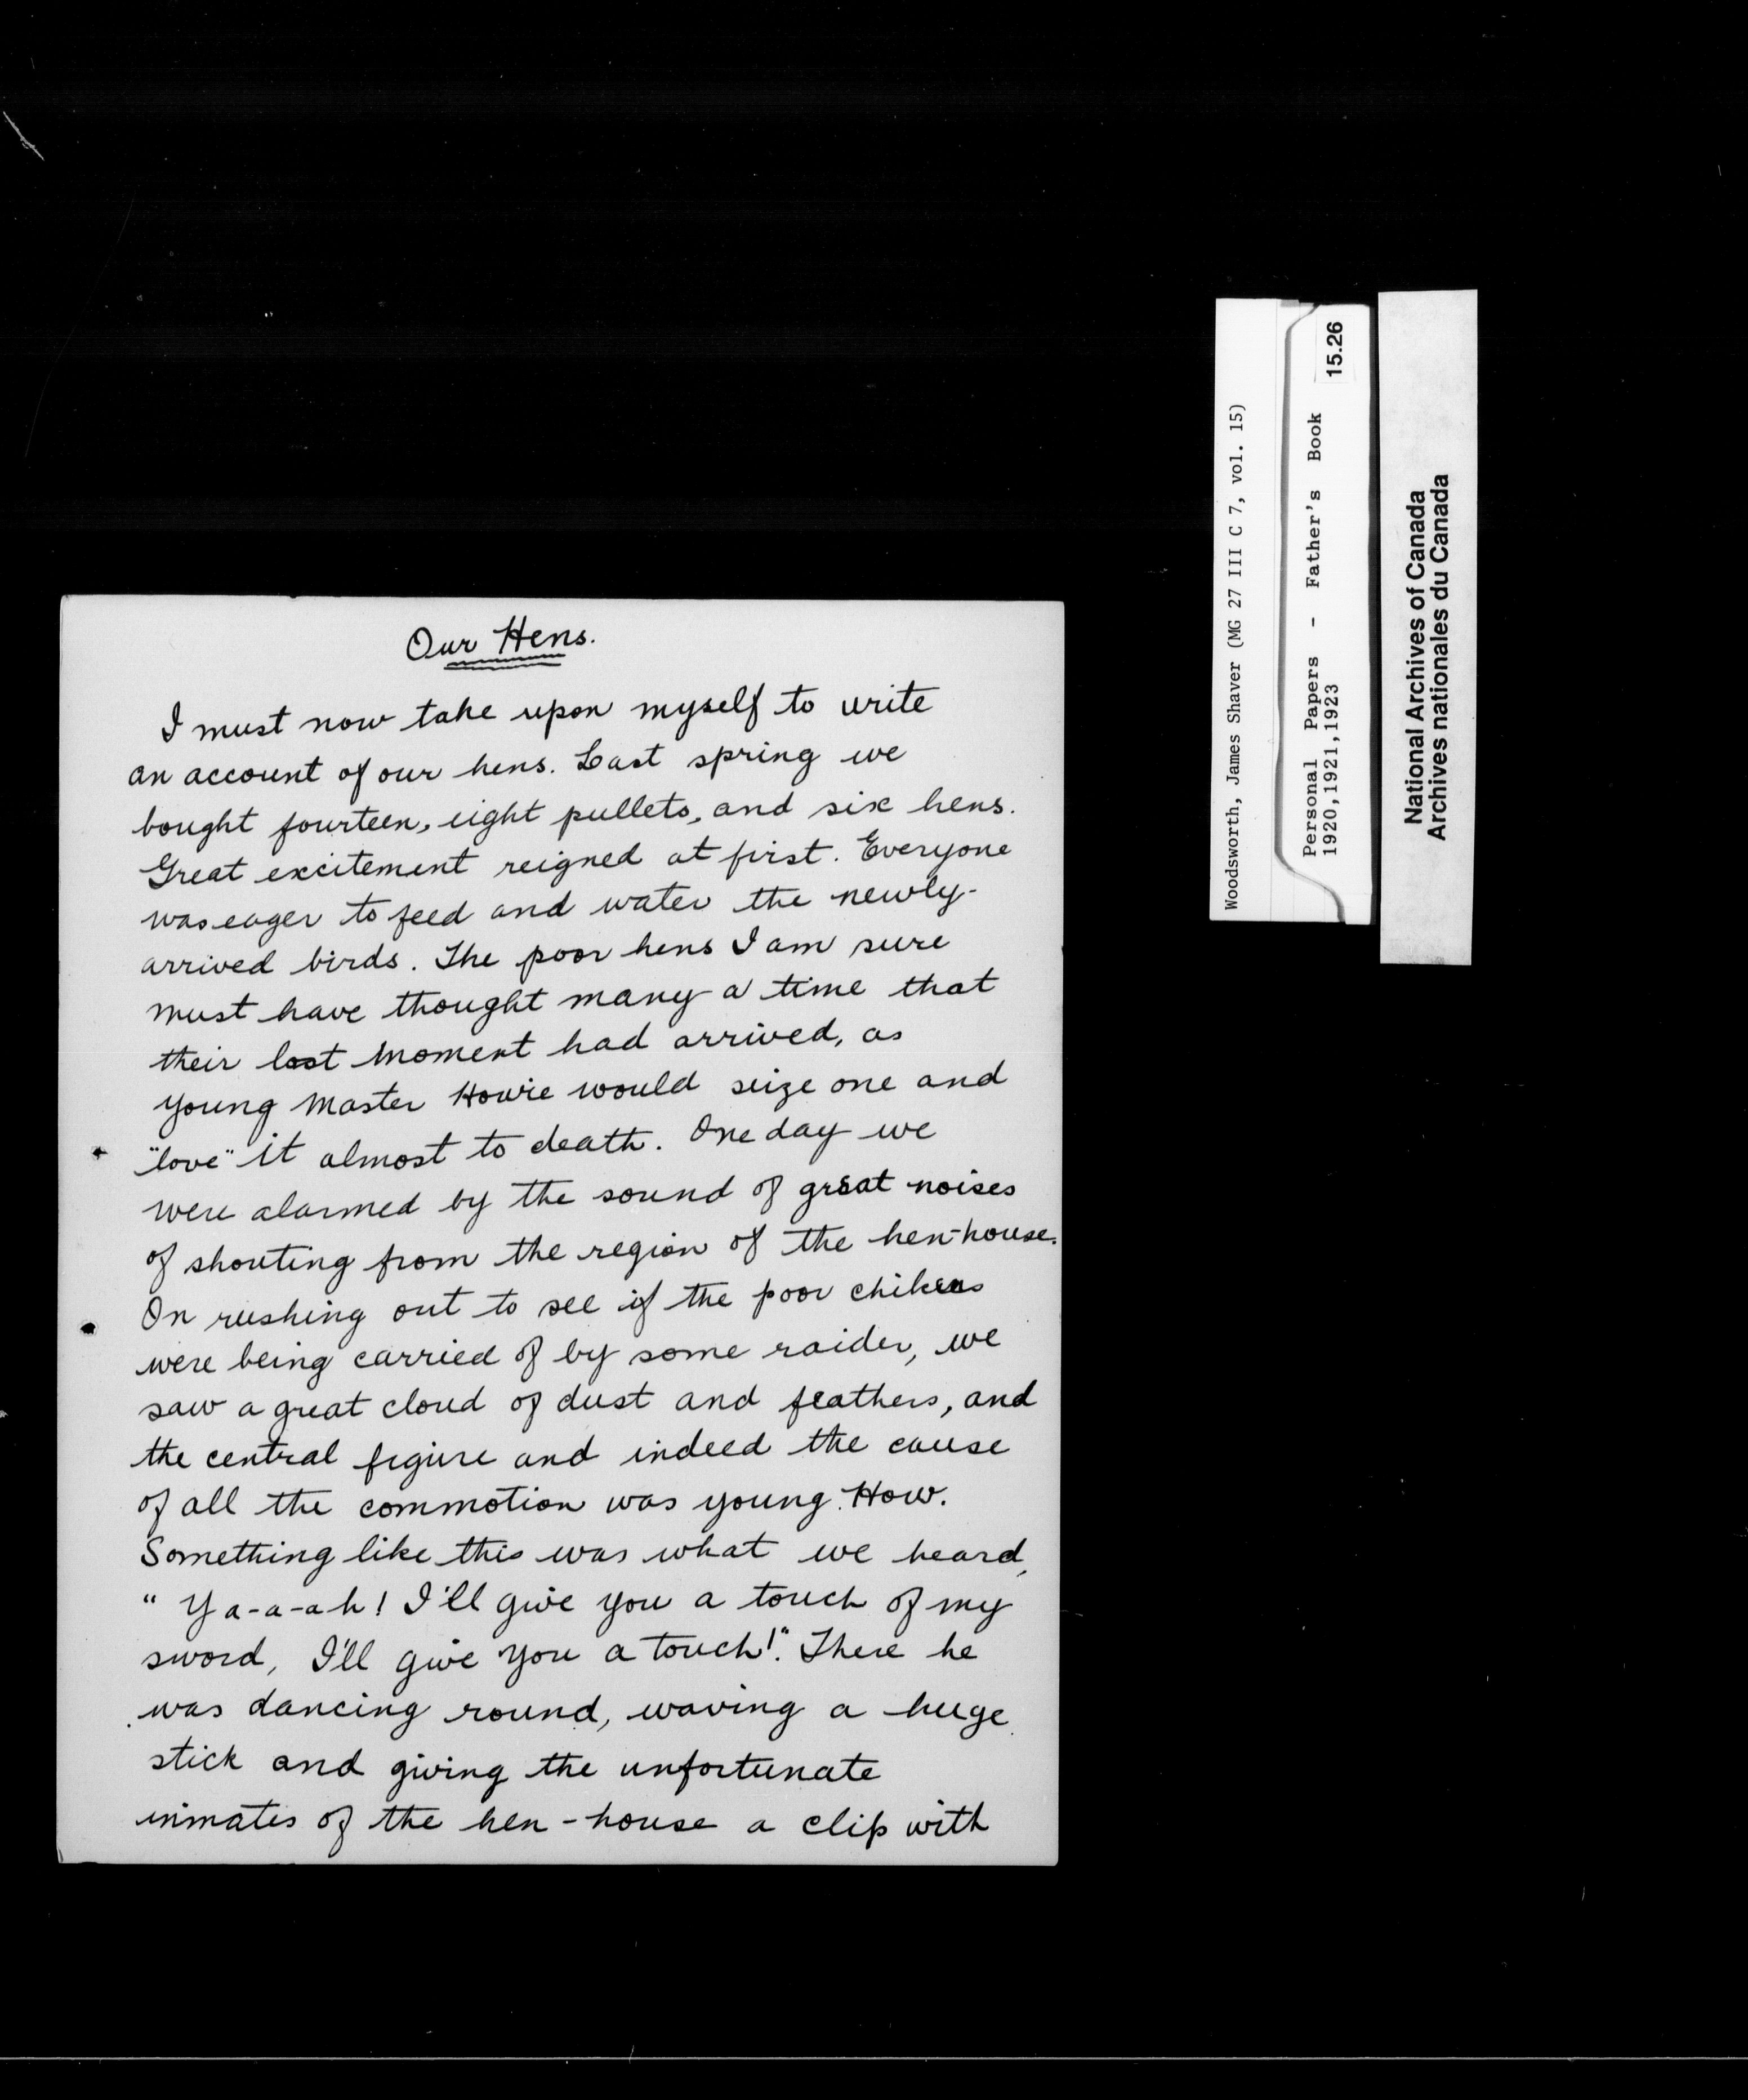 Our Hens.
I must now take upon myself to write
an account of our hens. Last spring we
bought fourteen, eight pullets, and six hens.
Great excitement reigned at first. Everyone
was eager to feed and water the newly-
arrived birds. The poor hens I am sure
must have thought many a time that
their last moment had arrived, as
young Master Howie would seize one and
"love" it almost to death. One day we
were alarmed by the sound of great noises
of shouting from the region of the hen-house.
On rushing out to see if the poor chikens
were being carried of by some raider, we
saw a great cloud of dust and feathers, and
the central figure and indeed the cause
of all the commotion was young How.
Something like this was what we heard,
" Ya-a-ah! I'll give you a touch of my
sword, I'll give you a touch!". There he
was dancing round, waving a huge
stick and giving the unfortunate
inmates of the hen-house a clip with
Woodsworth, James Shaver (MG 27 III C 7, vol. 15)
Personal Papers - Father's Book
1920,1921,1923
15.26
National Archives of Canada
Archives nationales du Canada